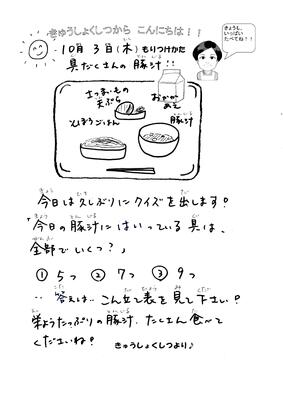 きゅうしょくしつから こんにちは！！
きょうも、
いっぱい
たべてね！！
10月 3日(木) もりつけかた
具だくさんの豚汁！！
さつまいもの
天ぷら
おかか
あえ
そぼろごはん
豚汁
今日は久しぶりにクイズを出します！
「今日の豚汁にはいっている具は、
全部でいくつ？」
① 5つ ② 7つ ③ 9つ
答えは‥こんだて表を見て下さい！
栄ようたっぷりの豚汁、たくさん食べて
くださいね！
きゅうしょくしつより♪